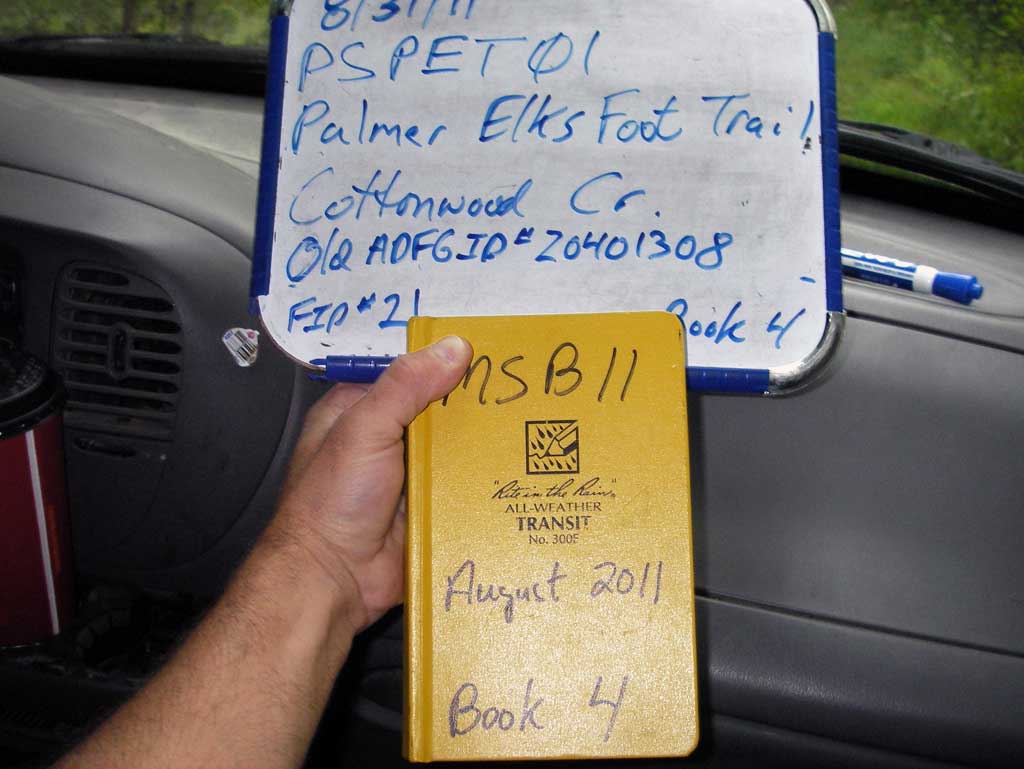 8/31/11
PSPETØ1
Palmer Elks Foot Trail
Cottonwood Cr.
Old ADFG ID# 20401308
FID # 21 Book 4
MSB11
"Rite in the Rain"
ALL-WEATHER
TRANSIT
No. 300F
August 2011
Book 4